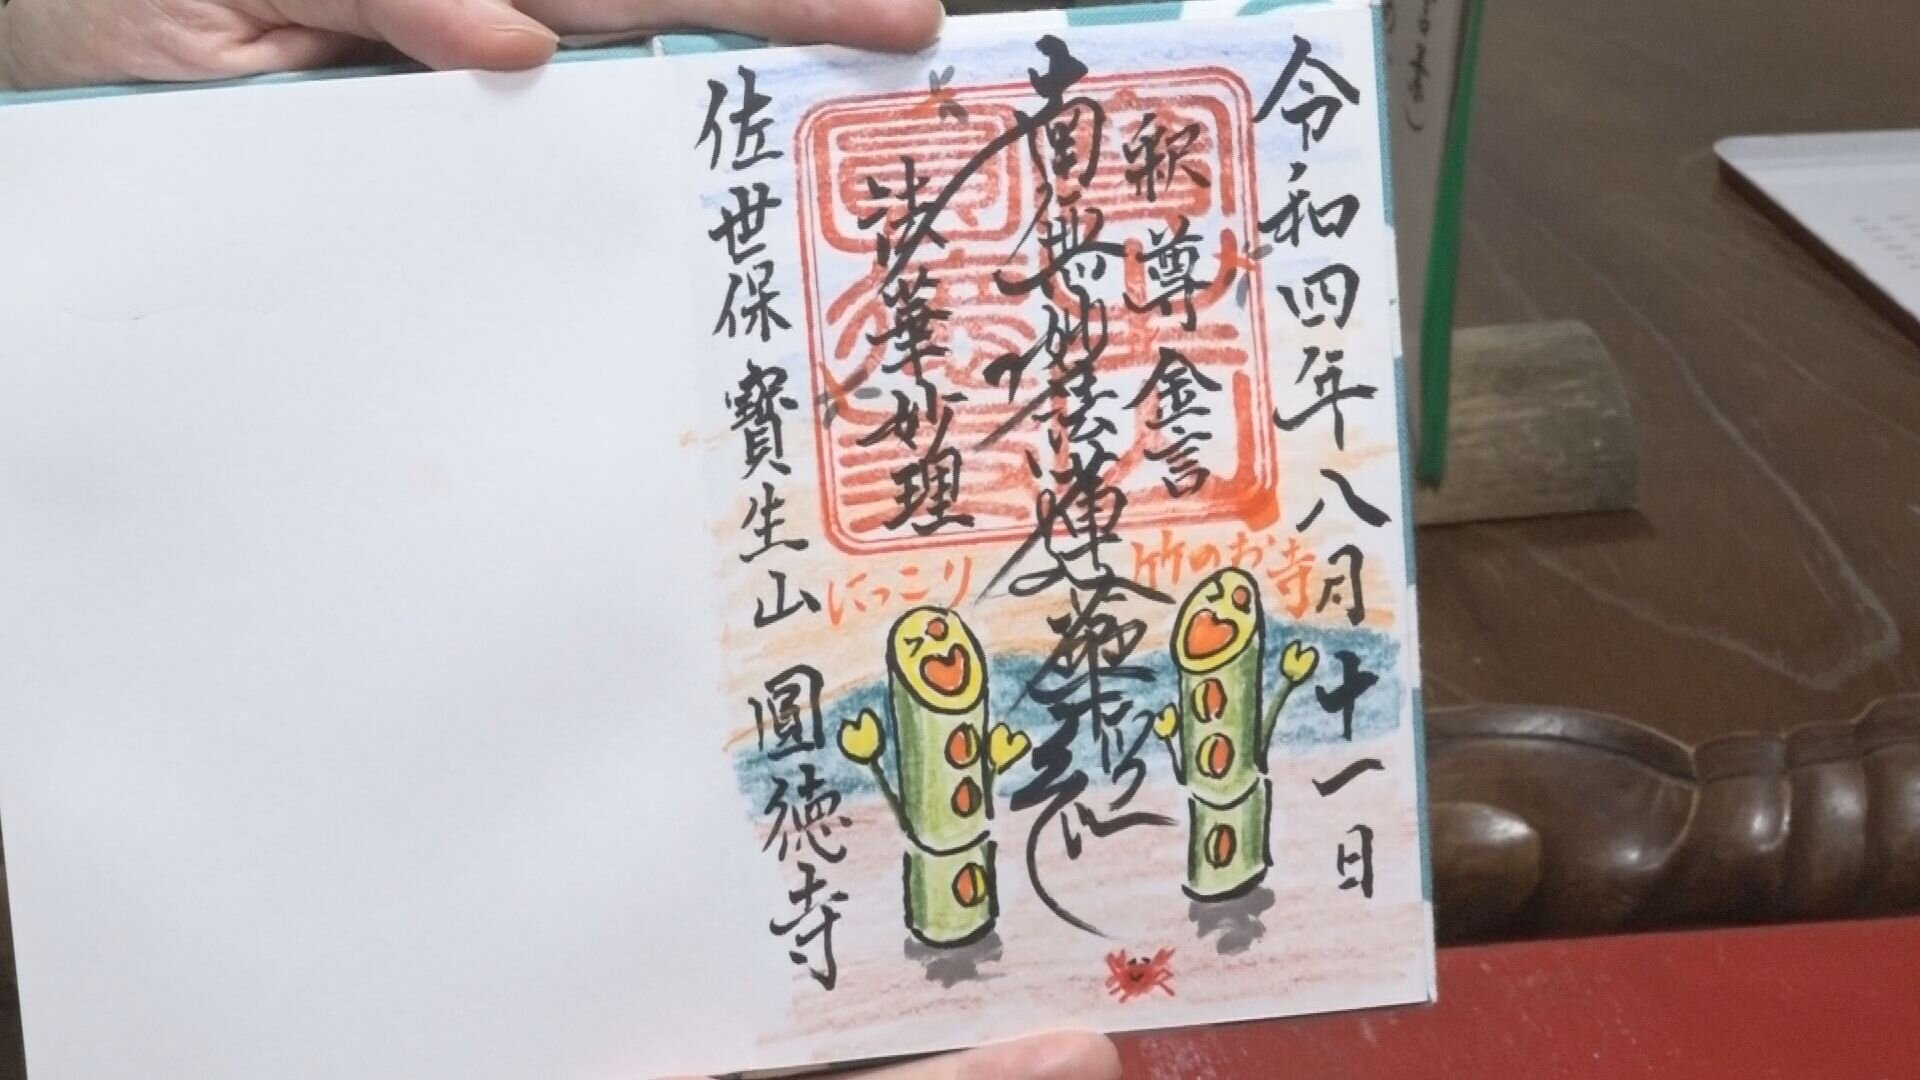 令和四年八月十一日
釈尊金言
南無妙法蓮華経
法華妙理
佐世保 寳生山 圓徳寺
竹のお寺
にっこり